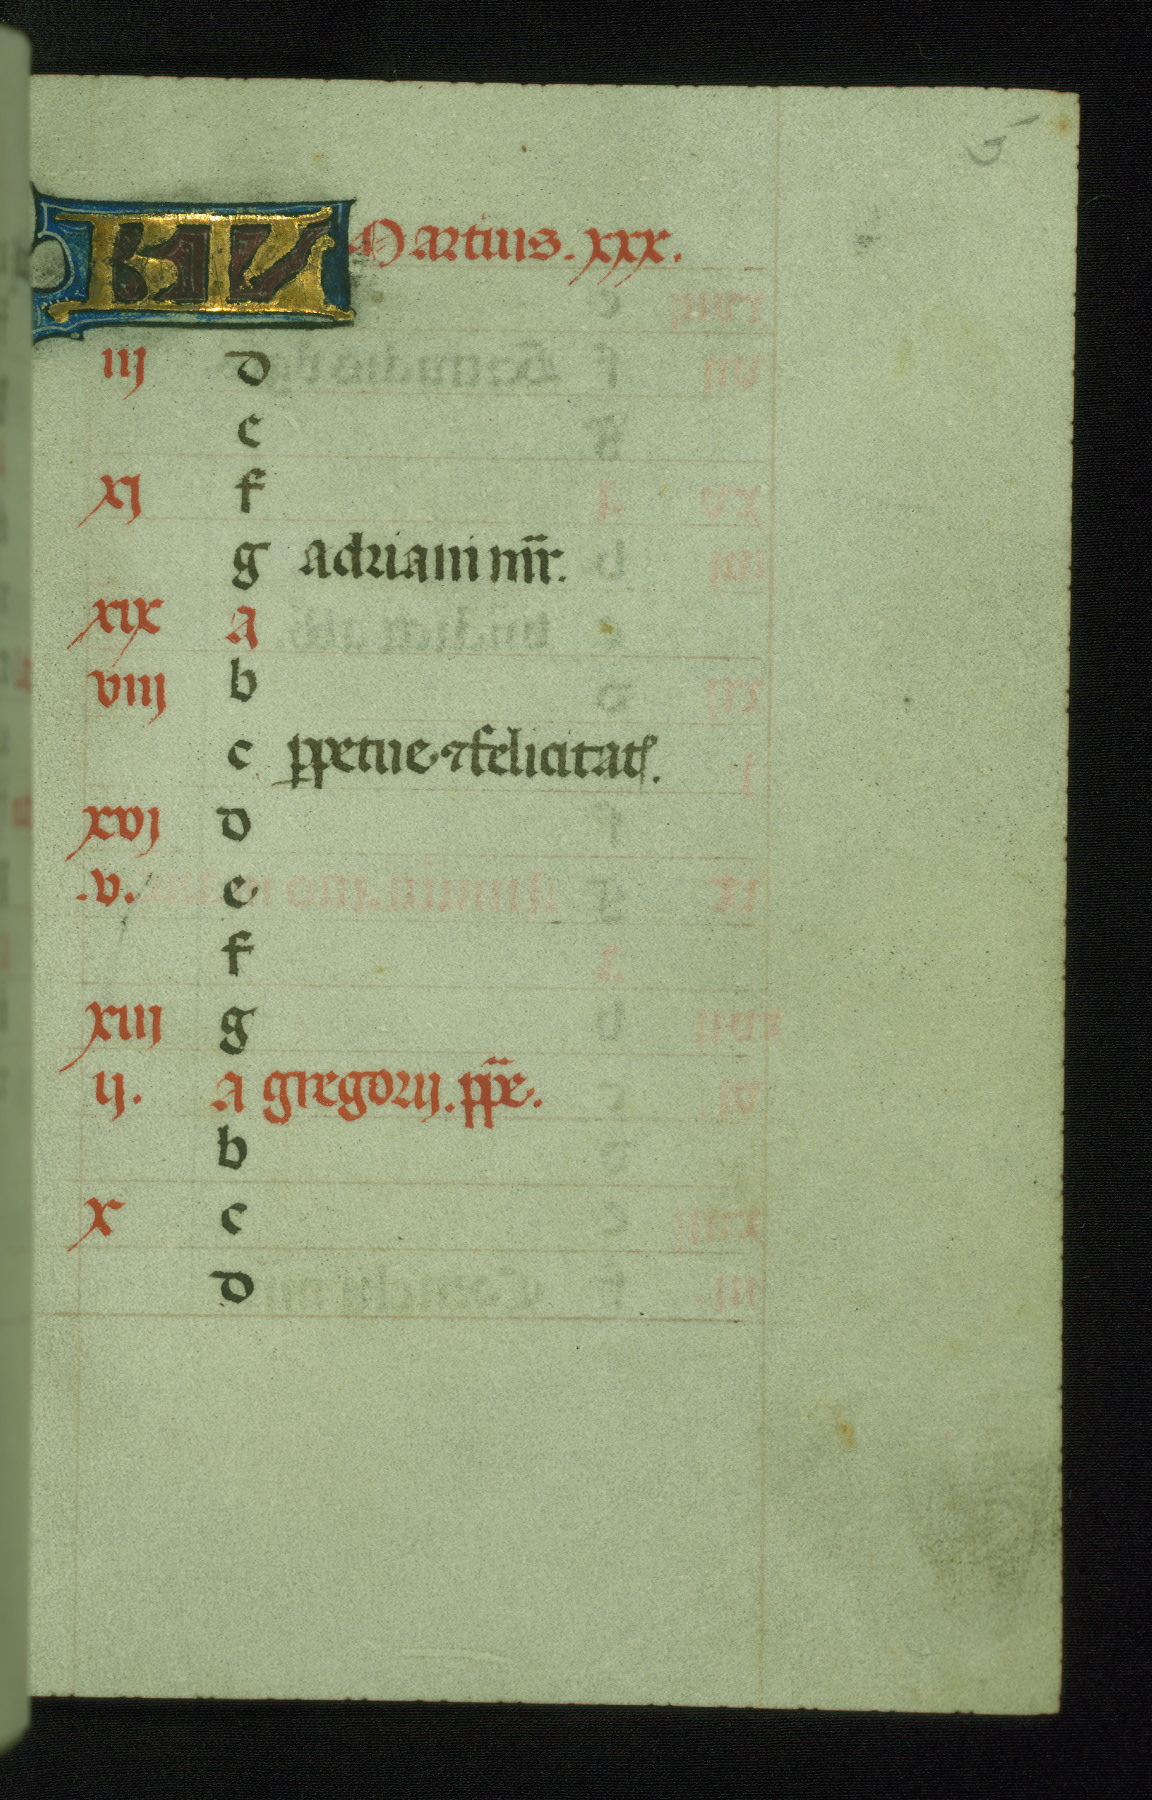 KL Martius. xxx.
iij d
e
xj f
g adriani mr̄.
xix a
viij b
c ppetue ⁊ felicitatꝭ.
xvj d
.v. e
f
xiij g
ij. a gregorij. pp̄e.
b
x c
d